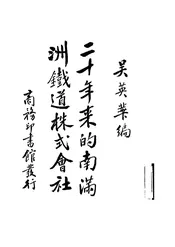 吴英華編
二十年来的南滿
洲鐵道株式會社
商務印書館發行